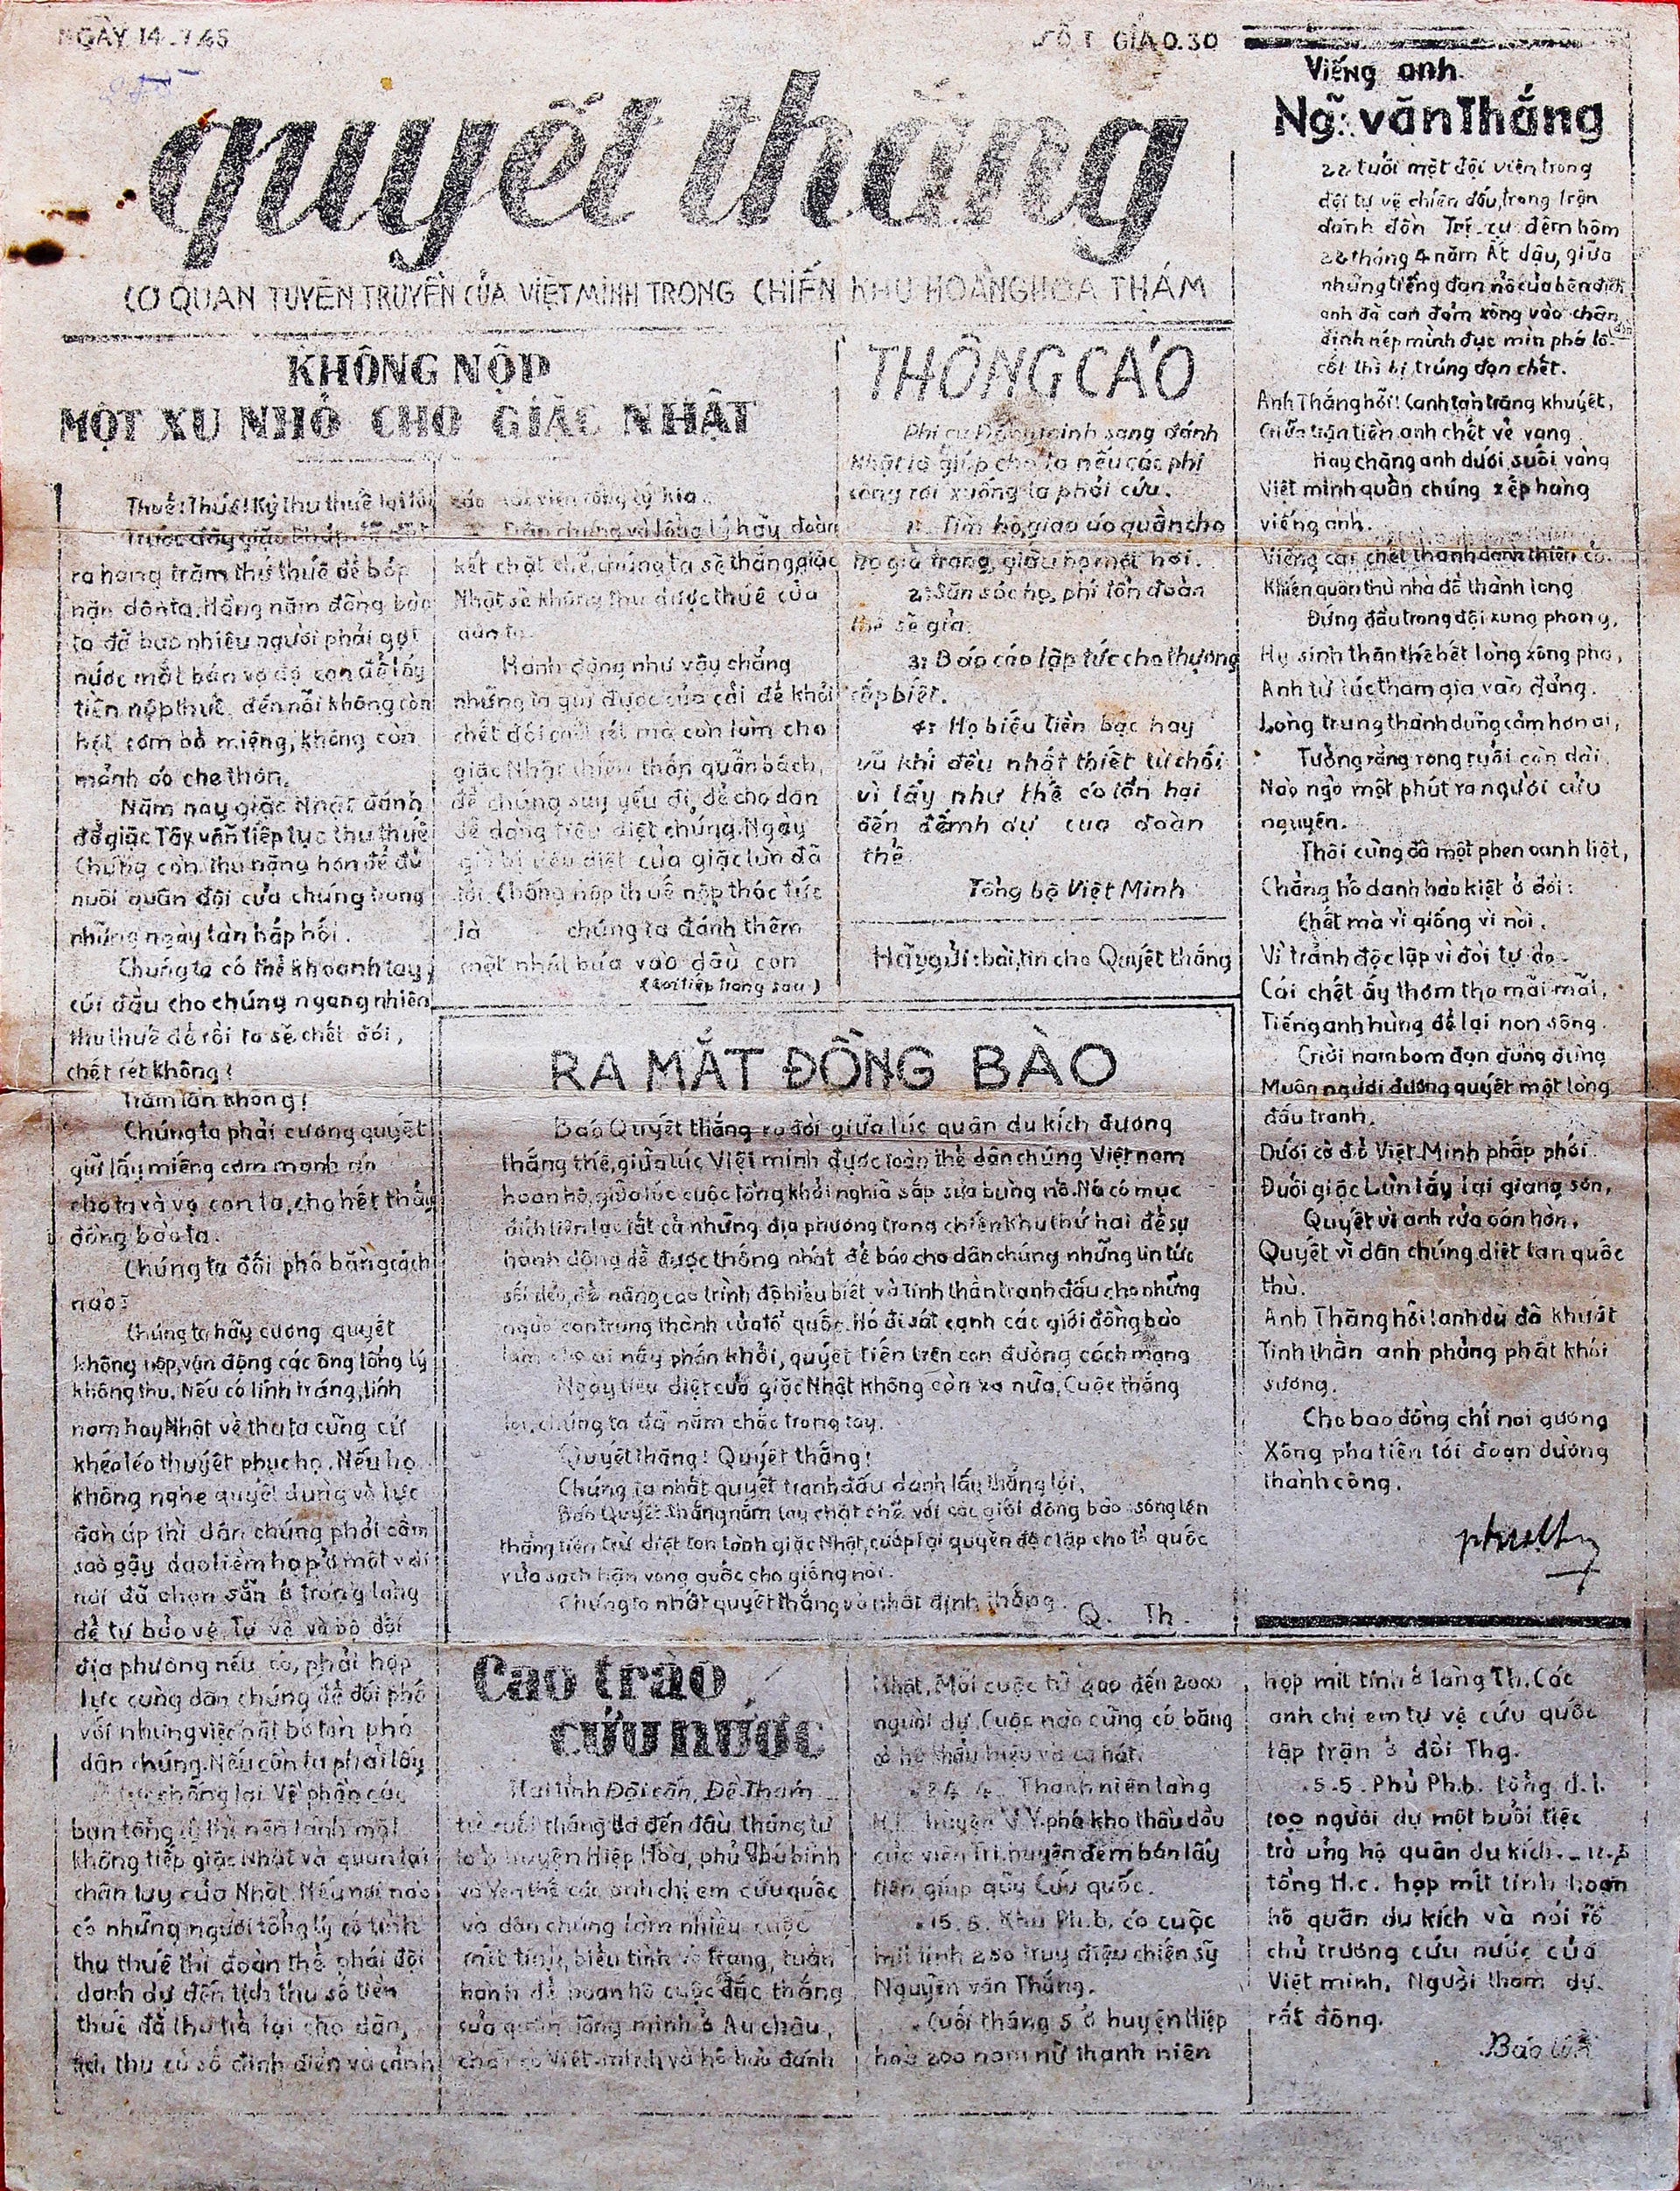 NGÀY 14-7.45
SỐ 1 GIÁ 0.30
quyết thắng
CƠ QUAN TUYÊN TRUYỀN CỦA VIỆT MINH TRONG CHIẾN KHU HOÀNG HOA THÁM
KHÔNG NỘP
MỘT XU NHỎ CHO GIẶC NHẬT
Thuế! Thuế! Kỳ thu thuế lại tới
Trước đây giặc Pháp đã đặt
ra hàng trăm thứ thuế để bóp
nặn dân ta. Hàng năm đồng bào
ta đã bao nhiêu người phải gạt
nước mắt bán vợ đợ con để lấy
tiền nộp thuế, đến nỗi không còn
hột cơm bỏ miệng, không còn
mảnh áo che thân.
Năm nay giặc Nhật đánh
đổ giặc Tây vẫn tiếp tục thu thuế
Chúng còn thu nặng hơn để đủ
nuôi quân đội của chúng trong
những ngày tàn hấp hối.
Chúng ta có thể khoanh tay,
cúi đầu cho chúng ngang nhiên
thu thuế để rồi ta sẽ chết đói,
chết rét không?
Trăm lần không!
Chúng ta phải cương quyết
giữ lấy miếng cơm manh áo
cho ta và vợ con ta, cho hết thảy
đồng bào ta.
Chúng ta đối phó bằng cách
nào?
Chúng ta hãy cương quyết
không nộp, vận động các ông tổng lý
không thu. Nếu có lính tráng, lính
nam hay Nhật về thu ta cũng cứ
khéo léo thuyết phục họ. Nếu họ
không nghe quyết dùng võ lực
đàn áp thì dân chúng phải cầm
sào gậy dao liềm họp ở một vài
nơi đã chọn sẵn ở trong làng
để tự bảo vệ. Tự vệ và bộ đội
địa phương nếu có, phải hợp
lực cùng dân chúng để đối phó
với những việc bắt bớ tàn phá
dân chúng. Nếu cần ta phải lấy
chống lại. Về phần các
bạn tổng lý thì nên lánh mặt
không tiếp giặc Nhật và quan lại
chân tay của Nhật. Nếu nơi nào
có những người tổng lý cố tình
thu thuế thì đoàn thể phái đội
danh dự đến tịch thu số tiền
thuế đã thu trả lại cho dân,
tịch thu cả sổ đinh điền và cảnh
cáo tổng lý kia.
Dân chúng và tổng lý hãy đoàn
kết chặt chẽ, chúng ta sẽ thắng, giặc
Nhật sẽ không thu được thuế của
dân ta.
Hành động như vậy chẳng
những ta giữ được của cải để khỏi
chết đói chết rét mà còn làm cho
giặc Nhật thiếu thốn quẫn bách,
để chúng suy yếu đi, để cho dân
dễ dàng tiêu diệt chúng. Ngày
giờ bị tiêu diệt của giặc lùn đã
tới. Chống nộp thuế nộp thóc tức
là chúng ta đánh thêm
một nhát búa vào đầu con
(coi tiếp trang sau)
THÔNG CÁO
Phi cơ Đồng minh sang đánh
Nhật là giúp cho ta nếu các phi
công rơi xuống ta phải cứu.
1: Tìm họ, giao áo quần cho
họ giả trang, giấu họ một hơi.
2: Săn sóc họ, phí tổn đoàn
thể sẽ giả.
3: Báo cáo lập tức cho thượng
cấp biết.
4: Họ biếu tiền bạc hay
vũ khí đều nhất thiết từ chối
vì lấy như thế có tổn hại
đến danh dự của đoàn
thể
Tổng bộ Việt Minh
Hãy gửi: bài, tin cho Quyết thắng
RA MẮT ĐỒNG BÀO
Báo Quyết thắng ra đời giữa lúc quân du kích đương
thắng thế, giữa lúc Việt minh được toàn thể dân chúng Việt nam
hoan hô, giữa lúc cuộc tổng khởi nghĩa sắp sửa bùng nổ. Nó có mục
đích liên lạc tất cả những địa phương trong chiến khu thứ hai để sự
hành động để được thống nhất để báo cho dân chúng những tin tức
sốt dẻo, để nâng cao trình độ hiểu biết và tinh thần tranh đấu cho những
người con trung thành của tổ quốc. Nó đi sát cạnh các giới đồng bào
làm cho ai nấy phấn khởi, quyết tiến trên con đường cách mạng
Ngày tiêu diệt của giặc Nhật không còn xa nữa, Cuộc thắng
lợi, chúng ta đã nắm chắc trong tay.
Quyết thắng! Quyết thắng!
Chúng ta nhất quyết tranh đấu dành lấy thắng lợi.
Báo Quyết thắng nắm tay chặt chẽ với các giới đồng bào sông lên
thẳng tiến trừ diệt tan tành giặc Nhật, cướp lại quyền độc lập cho tổ quốc
rửa sạch hận vong quốc cho giống nòi.
Chúng ta nhất quyết thắng và nhất định thắng.
Q. Th.
Viếng anh
Ng~: văn Thắng
22 tuổi một đội viên trong
đội tự vệ chiến đấu, trong trận
đánh đồn Trị-cụ đêm hôm
22 tháng 4 năm Ất dậu, giữa
những tiếng đạn nổ của bên địch
anh đã can đảm xông vào chân
định nép mình đục mìn phá lô-
cốt thì bị trúng đạn chết.
Anh Thắng hỡi! Canh tàn trăng khuyết,
Giữa trận tiền anh chết vẻ vang
Hay chăng anh dưới suối vàng
Việt minh quần chúng xếp hàng
viếng anh.
Viếng cái chết thành danh thiên cổ
Khiến quân thù nhà đổ thành long
Đứng đầu trong đội xung phong,
Hy sinh thân thế hết lòng xông pha,
Anh từ lúc tham gia vào đảng.
Lòng trung thành dũng cảm hơn ai,
Tưởng rằng rong ruổi còn dài
Nào ngờ một phút ra người cửu
nguyên.
Thôi cũng đã một phen oanh liệt,
Chẳng hổ danh hào kiệt ở đời:
Chết mà vì giống vì nòi.
Vì tranh độc lập vì đời tự do-
Cái chết ấy thơm tho mãi mãi,
Tiếng anh hùng để lại non sông.
Giời nam bom đạn đùng đùng
Muôn người đương quyết một lòng
đấu tranh.
Dưới cờ đỏ Việt-Minh phấp phới
Đuổi giặc Lùn lấy lại giang sơn,
Quyết vì anh rửa oán hờn.
Quyết vì dân chúng diệt tan quốc
thù.
Anh Thắng hỡi! anh dù đã khuất
Tinh thần anh phảng phất khói
sương.
Cho bao đồng chí noi gương
Xông pha tiến tới đoạn đường
thành công.
Cao trào
cứu nước
Hai tỉnh Đội cấn, Đề Thám
từ cuối tháng ba đến đầu tháng tư
ta ở huyện Hiệp Hòa, phủ Phú bình
và Yên thế các anh chị em cứu quốc
và dân chúng làm nhiều cuộc
mít tinh, biểu tình võ trang, tuần
hành để hoan hô cuộc đắc thắng
của quân đồng minh ở Âu châu,
chào cờ Việt-minh và hô hào đánh
Nhật. Mỗi cuộc từ 400 đến 2000
người dự. Cuộc nào cũng có băng
cờ hô khẩu hiệu và ca hát.
24.4. Thanh niên làng
huyện V.Y. phá kho thầu dầu
của viên tri huyện đem bán lấy
tiền giúp qũy Cứu quốc.
.15.5. Khu Ph.b. có cuộc
mít tinh 250 truy điệu chiến sỹ
Nguyễn văn Thắng.
. Cuối tháng 5 ở huyện Hiệp
hòa 200 nam nữ thanh niên
họp mít tinh ở làng Th. Các
anh chị em tự vệ cứu quốc
tập trận ở đồi Thg.
.5.5. Phủ Ph.b. tổng đ.l.
100 người dự một buổi tiệc
trà ủng hộ quân du kích.
tổng H.c. họp mít tinh hoan
hô quân du kích và nói rõ
chủ trương cứu nước của
Việt minh, Người tham dự
rất đông.